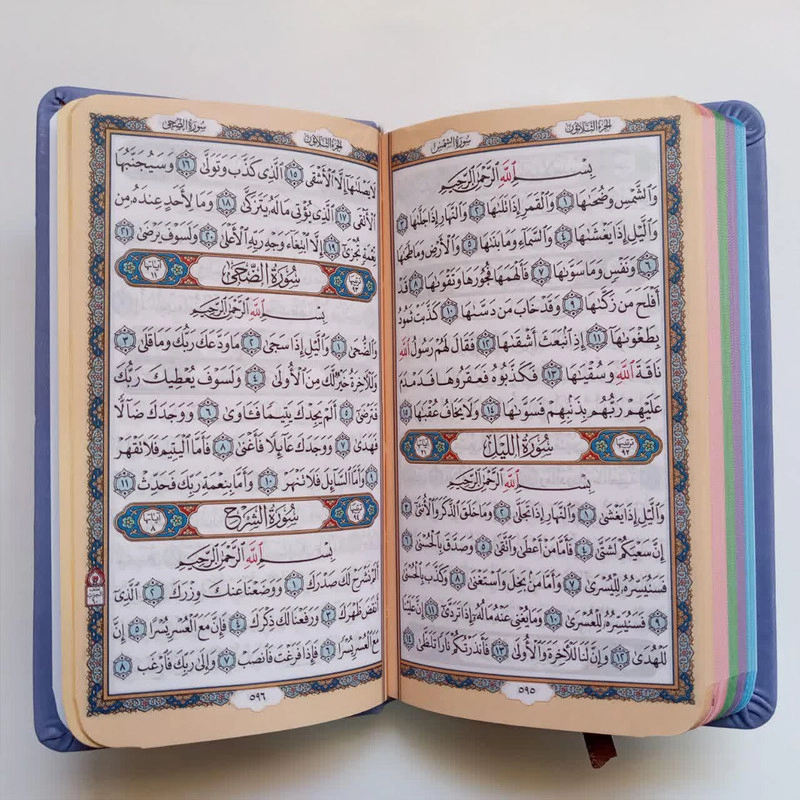 سورة الشمس
الجزء الثلاثون
بسم الله الرحمن الرحيم
والشمس وضحىها ١ والقمر إذا تلىها ٢ والنهار إذا جلىها ٣
واليل إذا يغشىها ٤ والسماء وما بنىها ٥ والأرض وما طحىها
٦ ونفس وما سوىها ٧ فألهمها فجورها وتقوىها ٨ قد
أفلح من زكىها ٩ وقد خاب من دسىها ١٠ كذبت ثمود
بطغوىها ١١ إذ انبعث أشقىها ١٢ فقال لهم رسول الله
ناقة الله وسقيىها ١٣ فكذبوه فعقروها فدمدم
عليهم ربهم بذنبهم فسوىها ١٤ ولا يخاف عقبىها ١٥
ترتيبها ٩٢ سورة الليل آياتها ٢١
بسم الله الرحمن الرحيم
واليل إذا يغشى ١ والنهار إذا تجلى ٢ وما خلق الذكر والأنثى ٣
إن سعيكم لشتى ٤ فأما من أعطى واتقى ٥ وصدق بالحسنى ٦
فسنيسره لليسرى ٧ وأما من بخل واستغنى ٨ وكذب بالحسنى
٩ فسنيسره للعسرى ١٠ وما يغني عنه ماله إذا تردى ١١ إن علينا
للهدى ١٢ وإن لنا للآخرة والأولى ١٣ فأنذرتكم نارا تلظى ١٤
٥٩٥
الجزء الثلاثون
سورة الضحى
لا يصلىها إلا الأشقى ١٥ الذي كذب وتولى ١٦ وسيجنبها
الأتقى ١٧ الذي يؤتي ماله يتزكى ١٨ وما لأحد عنده من
نعمة تجزى ١٩ إلا ابتغاء وجه ربه الأعلى ٢٠ ولسوف يرضى ٢١
ترتيبها ٩٣ سورة الضحى آياتها ١١
بسم الله الرحمن الرحيم
والضحى ١ واليل إذا سجى ٢ ما ودعك ربك وما قلى ٣
وللآخرة خير لك من الأولى ٤ ولسوف يعطيك ربك
فترضى ٥ ألم يجدك يتيما فآوى ٦ ووجدك ضالا
فهدى ٧ ووجدك عائلا فأغنى ٨ فأما اليتيم فلا تقهر
٩ وأما السائل فلا تنهر ١٠ وأما بنعمة ربك فحدث ١١
ترتيبها ٩٤ سورة الشرح آياتها ٨
بسم الله الرحمن الرحيم
ألم نشرح لك صدرك ١ ووضعنا عنك وزرك ٢ الذي
أنقض ظهرك ٣ ورفعنا لك ذكرك ٤ فإن مع العسر يسرا ٥ إن
مع العسر يسرا ٦ فإذا فرغت فانصب ٧ وإلى ربك فارغب ٨
٥٩٦